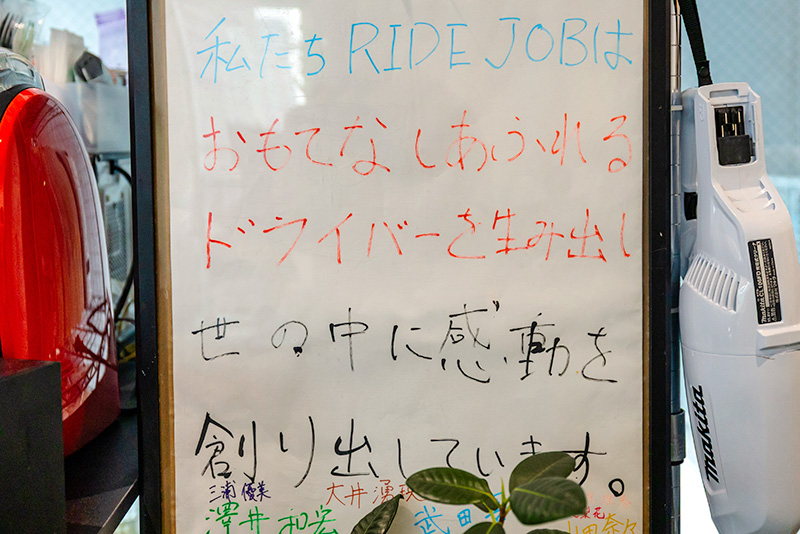 私たち RIDE JOBは
おもてなしあふれる
ドライバーを生み出し
世の中に感動を
創り出しています。
三浦 優美 大井 湧
澤井 和宏 武田
makita